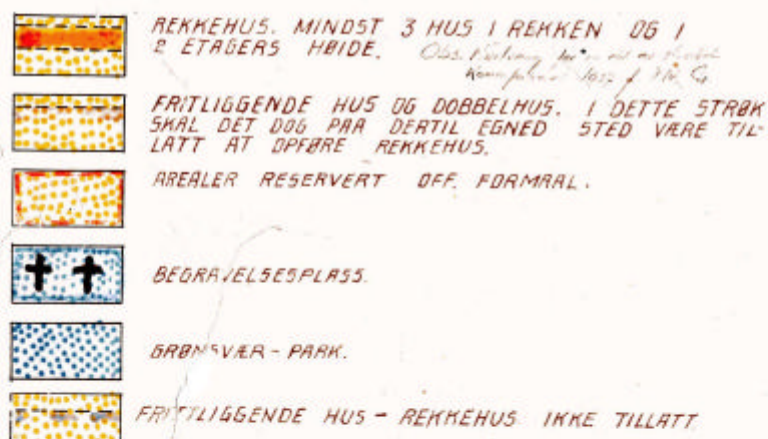 REKKEHUS. MINDST 3 HUS I REKKEN OG I
2 ETAGERS HØIDE.
FRITLIGGENDE HUS OG DOBBELHUS. I DETTE STRØK
SKAL DET DOG PAA DERTIL EGNED STED VÆRE TIL-
LATT AT OPFØRE REKKEHUS.
AREALER RESERVERT OFF. FORMAAL.
BEGRAVELSESPLASS.
GRØNSVÆR - PARK.
FRITTLIGGENDE HUS - REKKEHUS IKKE TILLATT